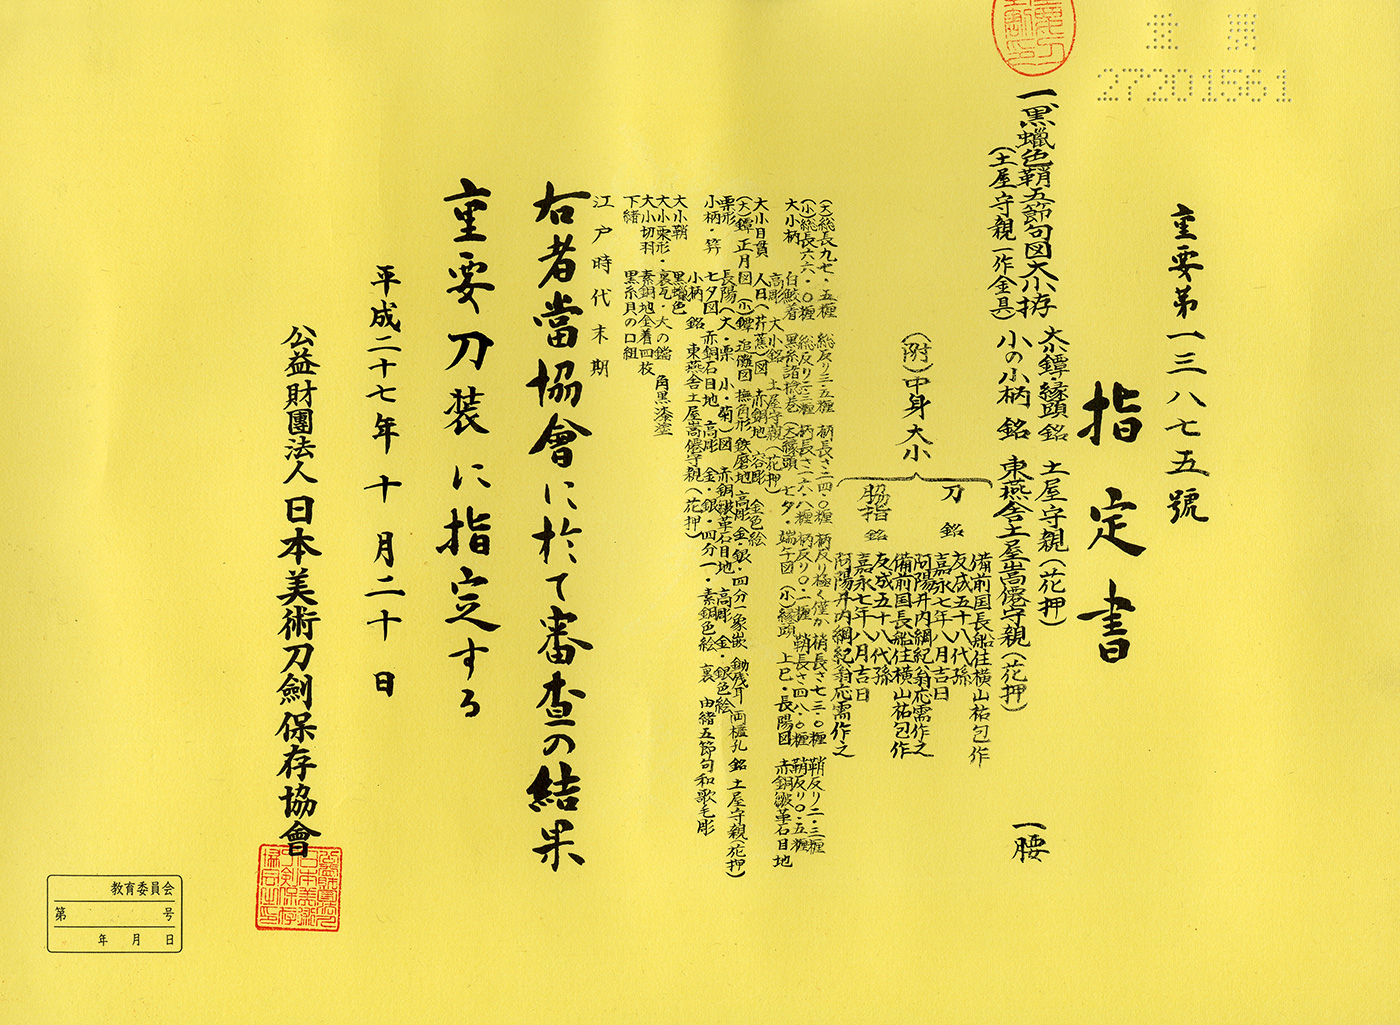 重要
27201561
重要第一三八七五號
指定書
一、黒蠟色鞘五節句図大小拵
(土屋守親一作金具)
大小鐔・縁頭 銘 土屋守親(花押)
小の小柄 銘 東燕舎土屋嵩僊守親(花押)
一腰
(附)中身大小
刀 銘
備前国長船住横山祐包作
友成五十八代孫
嘉永七年八月吉日
阿陽井内綱紀翁応需作之
脇指 銘
備前国長船住横山祐包作
友成五十八代孫
嘉永七年八月吉日
阿陽井内綱紀翁応需作之
(大)総長九七・五糎 総反り三・五糎 柄長さ二四・〇糎 柄反り極く僅か 鞘長さ七三・〇糎 鞘反り二・三糎
(小)総長六六・〇糎 総反り二・三糎 柄長さ一六・八糎 柄反り〇・一糎 鞘長さ四八・〇糎 鞘反り〇・五糎
大小柄 白鮫着 黒糸諸捻巻 (大)縁頭 七夕・端午図 (小)縁頭 上巳・長陽図 赤銅皺革石目地
高彫 大小銘 土屋守親(花押)
大小目貫 人日(芹蕉)図 赤銅地 容彫 金色絵
(大)鐔 正月図 (小)鐔 追儺図 撫角形 鉄磨地 高彫 金・銀・四分一象嵌 鋤残耳 両櫃孔 銘 土屋守親(花押)
栗形 長陽(大・栗 小・菊)図 赤銅皺革石目地 高彫 金・銀色絵
小柄・笄 七夕図 赤銅石目地 高彫 金・銀・四分一・素銅色絵 裏 由緒五節句和歌毛彫
小柄 銘 東燕舎土屋嵩僊守親(花押)
大小鞘 黒蠟色
大小栗形・裏瓦・大の鐺 角黒漆塗
大小切羽 素銅地金着四枚
下緒 黒糸貝の口組
江戸時代末期
右者當協會に於て審査の結果
重要刀装に指定する
平成二十七年十月二十日
公益財團法人日本美術刀劍保存協會
教育委員会
第 号
年 月 日